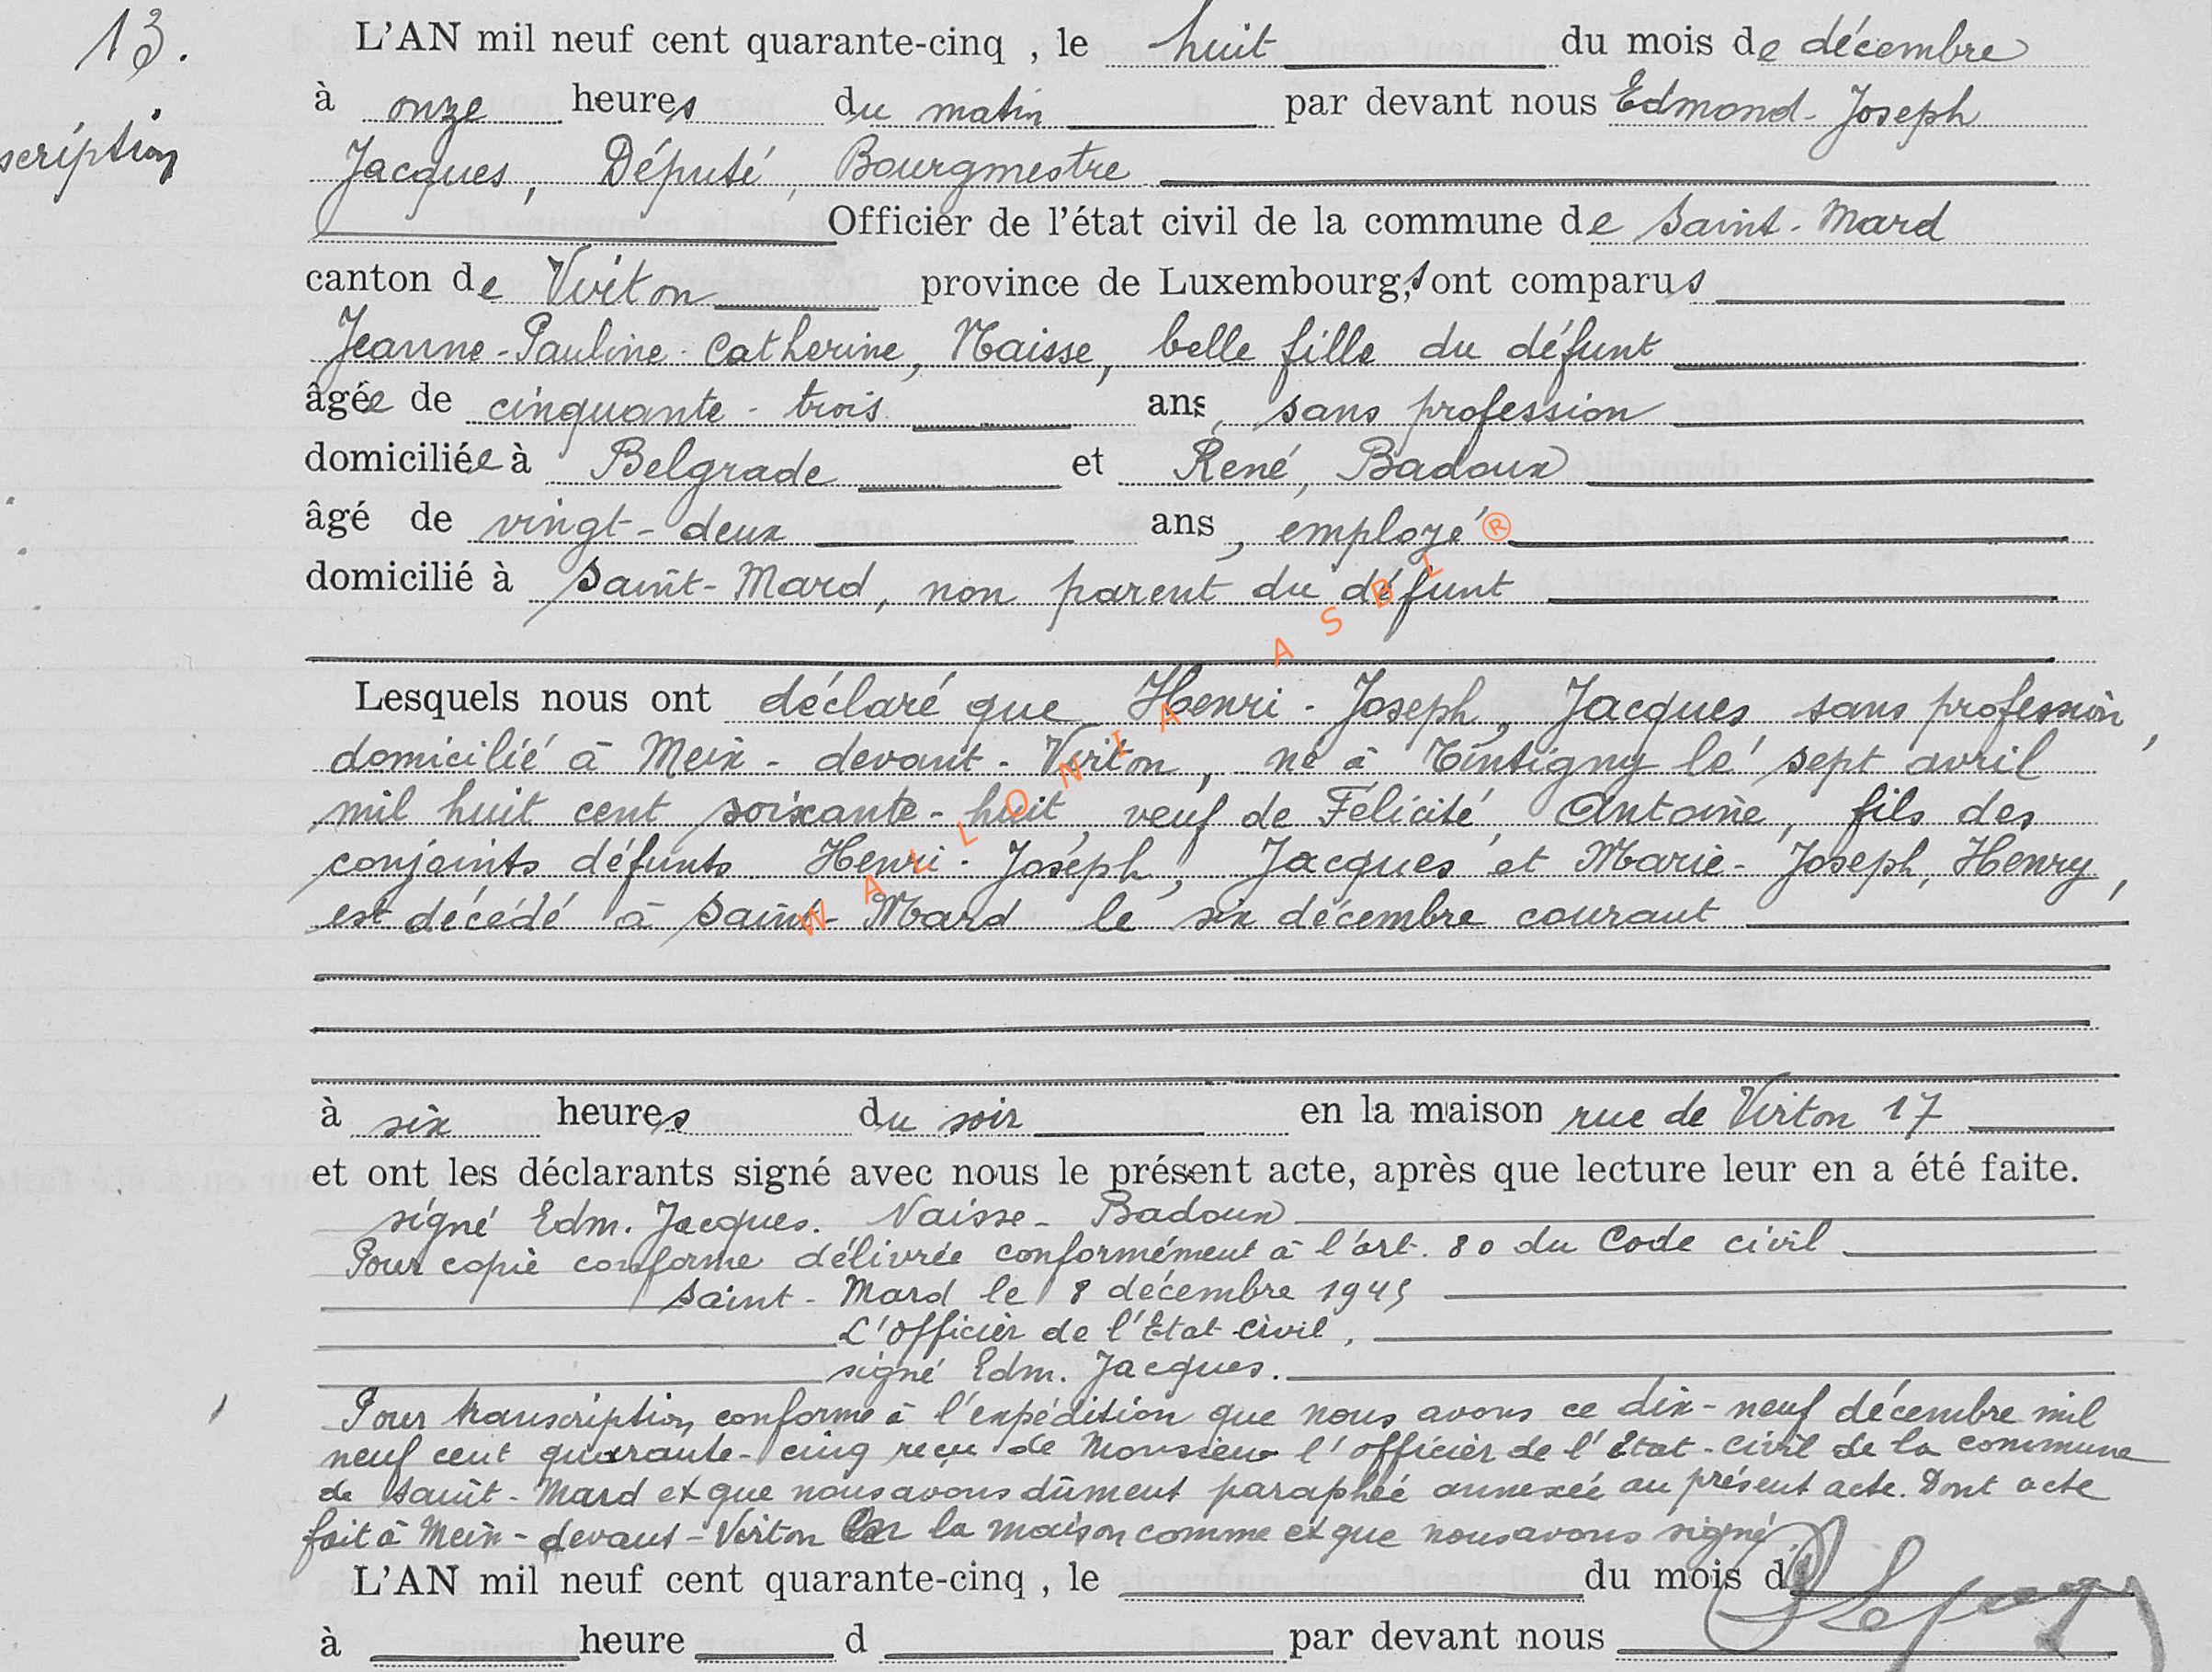 13.
scription
L'AN mil neuf cent quarante-cinq , le huit du mois de décembre
à onze heures du matin par devant nous Edmond-Joseph
Jacques, Député, Bourgmestre
Officier de l'état civil de la commune de Saint-Mard
canton de Virton province de Luxembourg, sont comparus
Jeanne-Pauline-Catherine, Naisse, belle fille du défunt
âgée de cinquante-trois ans, sans profession
domiciliée à Belgrade et René, Badoux
âgé de vingt-deux ans, employé
domicilié à Saint-Mard, non parent du défunt
Lesquels nous ont déclaré que Henri-Joseph, Jacques, sans profession,
domicilié à Meix-devant-Virton, né à Tintigny le sept avril
mil huit cent soixante-huit, veuf de Félicité, Antoine, fils des
conjoints défunts Henri-Joseph, Jacques et Marie-Joseph, Henry,
est décédé à Saint-Mard le six décembre courant
à six heures du soir en la maison rue de Virton 17
et ont les déclarants signé avec nous le présent acte, après que lecture leur en a été faite.
signé Edm. Jacques. Naisse - Badoux
Pour copie conforme délivrée conformément à l'art. 80 du Code civil
Saint-Mard le 8 décembre 1945
L'Officier de l'Etat-Civil,
signé Edm. Jacques.
Pour transcription conforme à l'expédition que nous avons ce dix-neuf décembre mil
neuf cent quarante-cinq reçu de Monsieur l'officier de l'Etat-Civil de la commune
de Saint-Mard et que nous avons dûment paraphée annexée au présent acte. Dont acte
fait à Meix-devant-Virton en la maison comme et que nous avons signé
L'AN mil neuf cent quarante-cinq , le du mois d
à heure d par devant nous
WALLONIA ASBL®